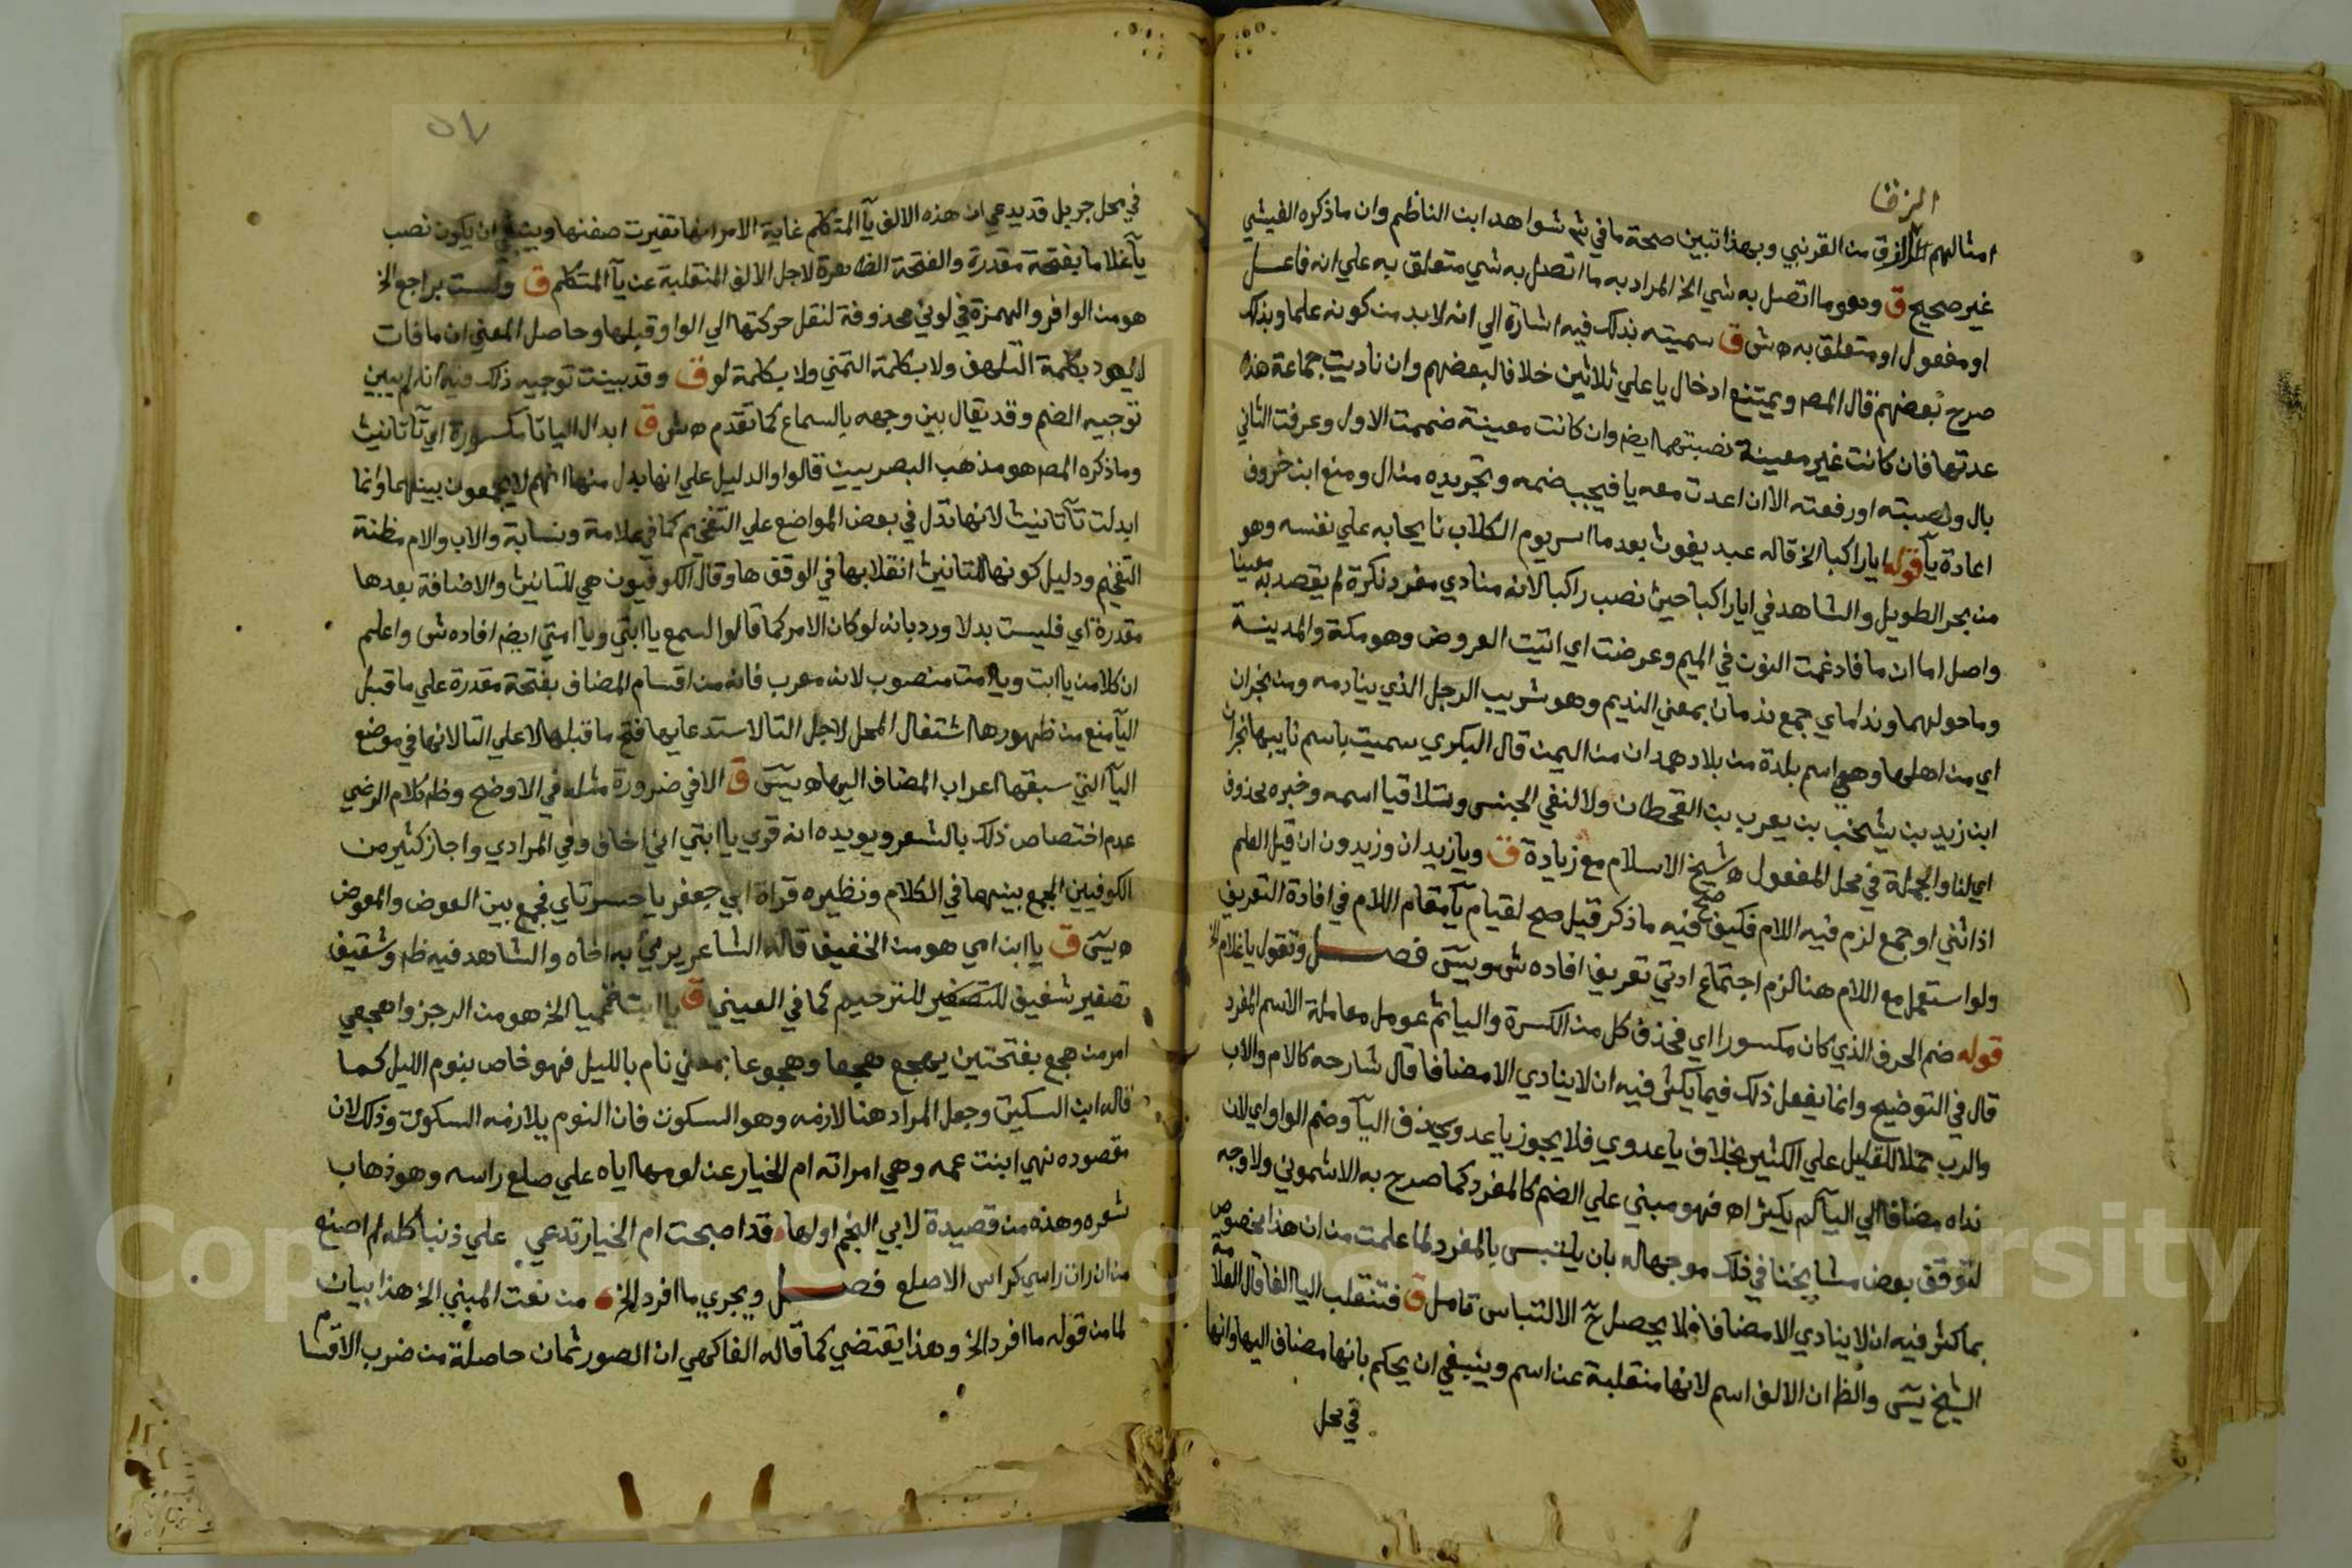 الزرقا
امثالهم الزق من القرنبي وبهذا تبين صحة ما في ش شواهد ابن الناظم وان ما ذكره الفيشي
غير صحيح ق وهو ما اتصل به شي الخ المراد به ما اتصل به شي متعلق به علي انه فاعل
او مفعول او متعلق به ه ش ق سميته بذلك فيه اشارة الي انه لابد من كونه علما وبذلك
صرح بعضهم قال المص ويمتنع ادخال يا علي ثلاثين خلافا لبعضهم وان ناديت جماعة هذه
عدتها فان كانت غير معينة نصبتهما ايض وان كانت معينة ضممت الاول وعرفت الثاني
بال ونصبته او رفعته الا ان اعدت معه يا فيجب ضمه وتجريده من ال ومنع ابن خروف
اعادة يا قوله ايا راكبا الخ قاله عبد يغوث بعد ما اسر يوم الكلاب نايحا به علي نفسه وهو
من بحر الطويل والشاهد في ايا راكبا حيث نصب راكبا لانه منادي مفرد نكرة لم يقصد به معينا
واصل اما ان ما فادغمت النون في الميم وعرضت اي اتيت العروض وهو مكة والمدينة
وما حولهما ونداماي جمع ندمان بمعني النديم وهو شريب الرجل الذي ينادمه ومن نجران
اي من اهلها وهي اسم بلدة من بلاد همدان من اليمن قال البكري سميت باسم نايبها نجران
ابن زيد بن يشجب بن يعرب بن القحطان ولا لنفي الجنس وتلاقيا اسمه وخبره محذوف
اي لنا والجملة في محل المفعول ه شيخ الاسلام مع زيادة ق ويا زيدان وزيدون ان قيل العلم
اذا ثني او جمع لزم فيه اللام فكيف صح فيه ما ذكر قيل صح لقيام يا مقام اللام في افادة التعريف
ولو استعمل مع اللام هنا لزم اجتماع ادتي تعريف افاده ش ويس فصل وتقول يا غلام الخ
قوله ضم الحرف الذي كان مكسورا اي فحذف كل من الكسرة واليا ثم عومل معاملة الاسم المفرد
قال في التوضيح وانما يفعل ذلك فيما يكثر فيه ان لا ينادي الا مضافا قال شارحه كالام والاب
والرب حملا للقليل علي الكثير بخلاف يا عدوي فلا يجوز يا عدو بحذف اليا وضم الواو اي لان
نداه مضافا الي اليا لم يكثر اه فهو مبني علي الضم كالمفرد كما صرح به الاشموني ولا وجه
لتوقف بعض مشايخنا في ذلك موجها له بان يلتبس بالمفرد لما علمت من ان هذا مخصوص
بما كثر فيه ان لا ينادي الا مضافا فلا يحصل ح الالتباس تامل ق فتنقلب اليا الفا قال العلامة
الشيخ يس والظ ان الالف اسم لانها منقلبة عن اسم وينبغي ان يحكم بانها مضاف اليها وانها
في محل
٥٧
في محل جر بل قد يدعي ان هذه الالف يا المتكلم غاية الامر انها تغيرت صفتها وينبغي ان يكون نصب
يا غلاما بفتحة مقدرة والفتحة الظاهرة لاجل الالف المنقلبة عن يا المتكلم ق ولست براجع الخ
هو من الوافر والهمزة في لوني محذوفة لنقل حركتها الي الواو قبلها وحاصل المعني ان ما فات
لا يعود بكلمة التلهف ولا بكلمة التمني ولا بكلمة لو ق وقد بينت توجيه ذلك فيه انه لم يبين
توجيه الضم وقد يقال بين وجهه بالسماع كما تقدم ه ش ق ابدال اليا تا مكسورة اي تا تانيث
وما ذكره المص هو مذهب البصريين قالوا والدليل علي انها بدل منها انهم لا يجمعون بينهما وانما
ابدلت تا تانيث لانها تدل في بعض المواضع علي التفخيم كما في علامة ونسابة والاب والام مظنة
التفخيم ودليل كونها للتانيث انقلابها في الوقف ها وقال الكوفيون هي للتانيث والاضافة بعدها
مقدرة اي فليست بدلا ورد بانه لو كان الامر كما قالوا لسمع يا ابتي ويا امتي ايض افاده ش واعلم
ان كلا من يا ابت ويا امت منصوب لانه معرب فانه من اقسام المضاف بفتحة مقدرة علي ما قبل
اليا منع من ظهورها اشتغال المحل لاجل التا لاستدعايها فتح ما قبلها لا علي التا لانها في موضع
اليا التي سبقها اعراب المضاف اليها ه يس ق الا في ضرورة مثله في الاوضح وظ كلام الرضي
عدم اختصاص ذلك بالشعر ويويده انه قري يا ابتي اني اخاف وفي المرادي واجاز كثير من
الكوفيين الجمع بينهما في الكلام ونظيره قراة ابي جعفر يا حسرتاي فجمع بين العوض والمعوض
ه يس ق يا ابن امي هو من الخفيف قاله الشاعر يرثي به اخاه والشاهد فيه ظ وشقيق
تصغير شقيق للتصغير للترخيم كما في العيني ق يا ابنت عميا الخ هو من الرجز واهجعي
امر من هجع بفتحتين يهجع هجعا وهجوعا بمعني نام بالليل فهو خاص بنوم الليل كما
قاله ابن السكيت وجعل المراد هنا لازمه وهو السكون فان النوم يلازمه السكون وذلك لان
مقصوده نهي ابنت عمه وهي امراته ام الخيار عن لومها اياه علي صلع راسه وهو ذهاب
شعره وهذه من قصيدة لابي النجم اولها قد اصبحت ام الخيار تدعي علي ذنبا كله لم اصنع
من ان رات راسي كراس الاصلع فصل ويجري ما افرد الخ من نعت المبني الخ هذا بيان
لما من قوله ما افرد الخ وهذا يقتضي كما قاله الفاكهي ان الصور ثمان حاصلة من ضرب الاقسام